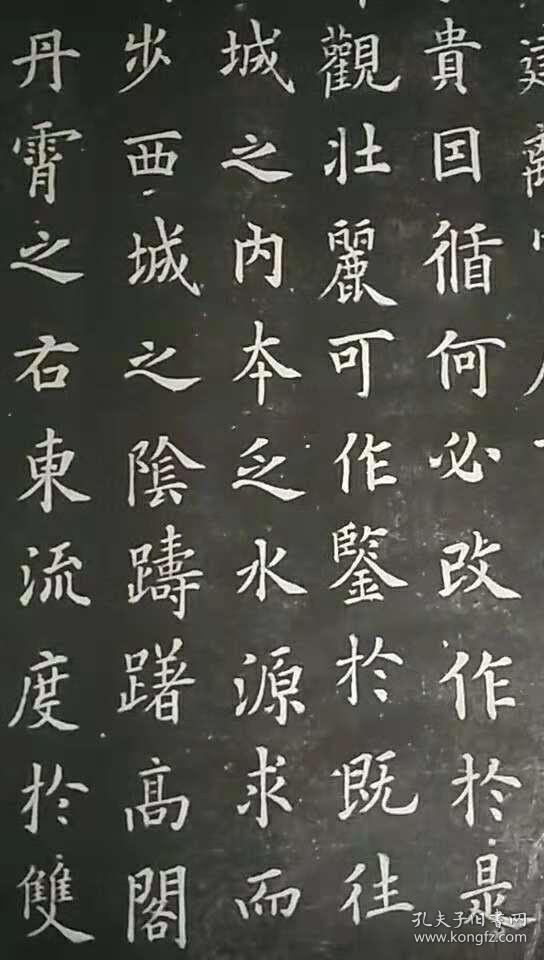 貴因循何必改作於是
觀壯麗可作鑒於既往
城之內本乏水源求而
步西城之陰躊躇高閣
丹霄之右東流度於雙
孔夫子旧书网
www.kongfz.com